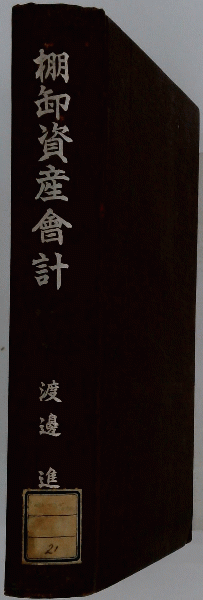 棚卸資産會計
渡邊進
21